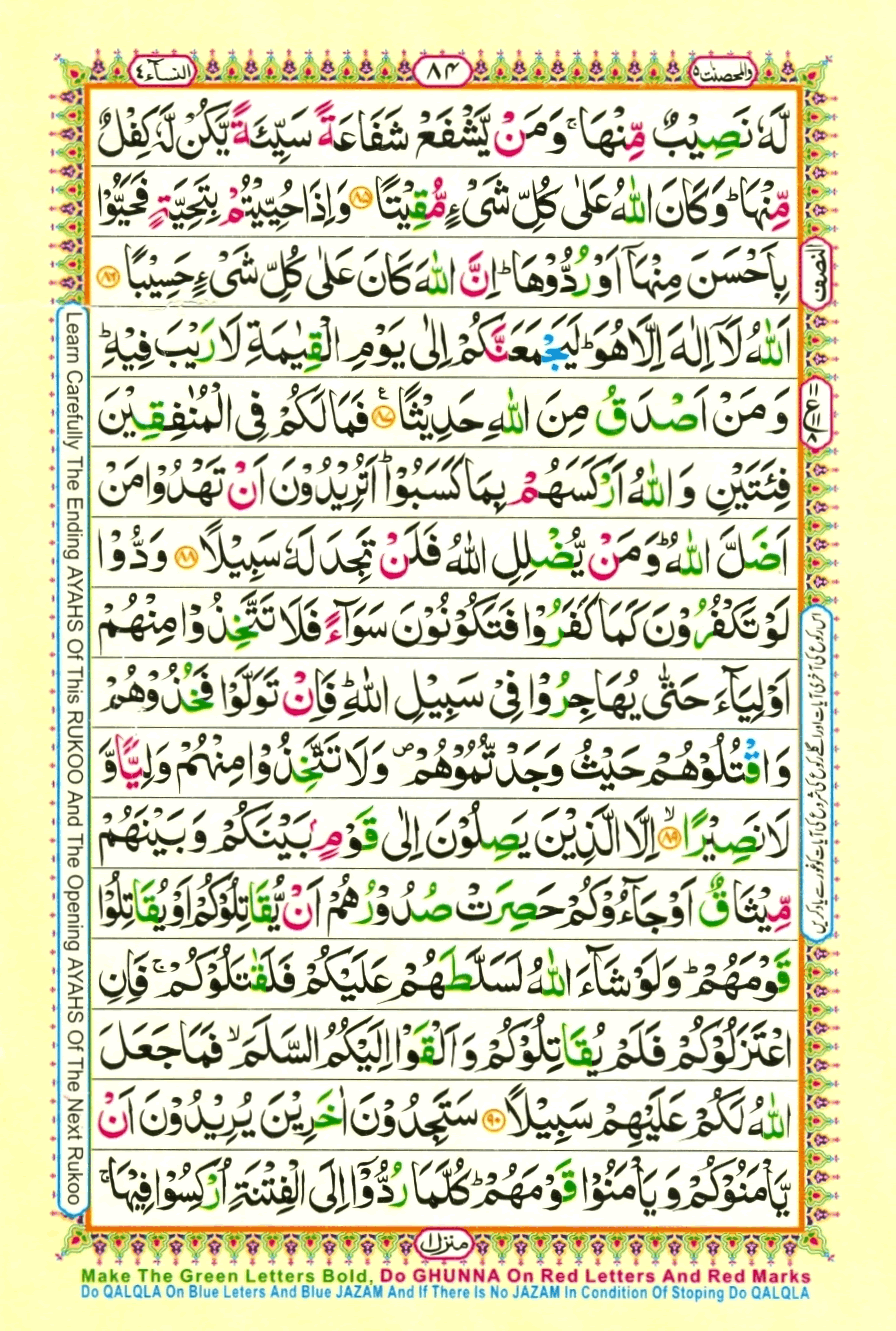 النسآء ٤
٨٤
والمحصنت ٥
لَّهٗ نَصِيْبٌ مِّنْهَا ۚ وَمَنْ يَّشْفَعْ شَفَاعَةً سَيِّئَةً يَّكُنْ لَّهٗ كِفْلٌ
مِّنْهَا ؕ وَكَانَ اللّٰهُ عَلٰى كُلِّ شَىْءٍ مُّقِيْتًا ۝۸۵ وَاِذَا حُيِّيْتُمْ بِتَحِيَّةٍ فَحَيُّوْا
بِاَحْسَنَ مِنْهَاۤ اَوْ رُدُّوْهَا ؕ اِنَّ اللّٰهَ كَانَ عَلٰى كُلِّ شَىْءٍ حَسِيْبًا ۝۸۶
النصف
اَللّٰهُ لَاۤ اِلٰهَ اِلَّا هُوَ ؕ لَيَجْمَعَنَّكُمْ اِلٰى يَوْمِ الْقِيٰمَةِ لَا رَيْبَ فِيْهِ ؕ
وَمَنْ اَصْدَقُ مِنَ اللّٰهِ حَدِيْثًا ۝۸۷ ع فَمَا لَكُمْ فِى الْمُنٰفِقِيْنَ
فِئَتَيْنِ وَاللّٰهُ اَرْكَسَهُمْ بِمَا كَسَبُوْا ؕ اَتُرِيْدُوْنَ اَنْ تَهْدُوْا مَنْ
اَضَلَّ اللّٰهُ ؕ وَمَنْ يُّضْلِلِ اللّٰهُ فَلَنْ تَجِدَ لَهٗ سَبِيْلًا ۝۸۸ وَدُّوْا
لَوْ تَكْفُرُوْنَ كَمَا كَفَرُوْا فَتَكُوْنُوْنَ سَوَآءً فَلَا تَتَّخِذُوْا مِنْهُمْ
اَوْلِيَآءَ حَتّٰى يُهَاجِرُوْا فِىْ سَبِيْلِ اللّٰهِ ؕ فَاِنْ تَوَلَّوْا فَخُذُوْهُمْ
وَاقْتُلُوْهُمْ حَيْثُ وَجَدْتُّمُوْهُمْ ۪ وَلَا تَتَّخِذُوْا مِنْهُمْ وَلِيًّا وَّ
لَا نَصِيْرًا ۝۸۹ ۙ اِلَّا الَّذِيْنَ يَصِلُوْنَ اِلٰى قَوْمٍۭ بَيْنَكُمْ وَبَيْنَهُمْ
مِّيْثَاقٌ اَوْ جَآءُوْكُمْ حَصِرَتْ صُدُوْرُهُمْ اَنْ يُّقَاتِلُوْكُمْ اَوْ يُقَاتِلُوْا
قَوْمَهُمْ ؕ وَلَوْ شَآءَ اللّٰهُ لَسَلَّطَهُمْ عَلَيْكُمْ فَلَقٰتَلُوْكُمْ ۚ فَاِنِ
اعْتَزَلُوْكُمْ فَلَمْ يُقَاتِلُوْكُمْ وَاَلْقَوْا اِلَيْكُمُ السَّلَمَ ۙ فَمَا جَعَلَ
اللّٰهُ لَكُمْ عَلَيْهِمْ سَبِيْلًا ۝۹۰ سَتَجِدُوْنَ اٰخَرِيْنَ يُرِيْدُوْنَ اَنْ
يَّاْمَنُوْكُمْ وَيَاْمَنُوْا قَوْمَهُمْ ؕ كُلَّمَا رُدُّوْۤا اِلَى الْفِتْنَةِ اُرْكِسُوْا فِيْهَا ۚ
منزل ١
Learn Carefully The Ending AYAHS Of This RUKOO And The Opening AYAHS Of The Next Rukoo
اس رکوع کی آخری آیات اور اگلے رکوع کی شروع کی آیات کو غور سے یاد کریں
Make The Green Letters Bold, Do GHUNNA On Red Letters And Red Marks
Do QALQLA On Blue Leters And Blue JAZAM And If There Is No JAZAM In Condition Of Stoping Do QALQLA